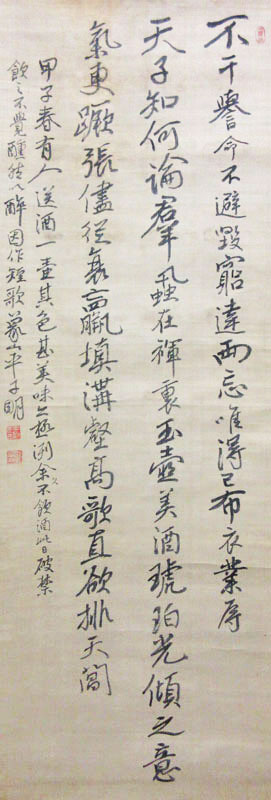 不干譽兮不避毀窮達兩忘唯得已布衣業辱
天子知何論羣蝨在褌裏玉壺美酒琥珀光傾之意
氣更蹶張儘從衰羸填溝壑高歌直欲排天閶
甲子春有人送酒一壺其色甚美味亦極冽余久不飲酒此日破禁
飲之不覺醺然以醉因作短歌 蒙山平子明